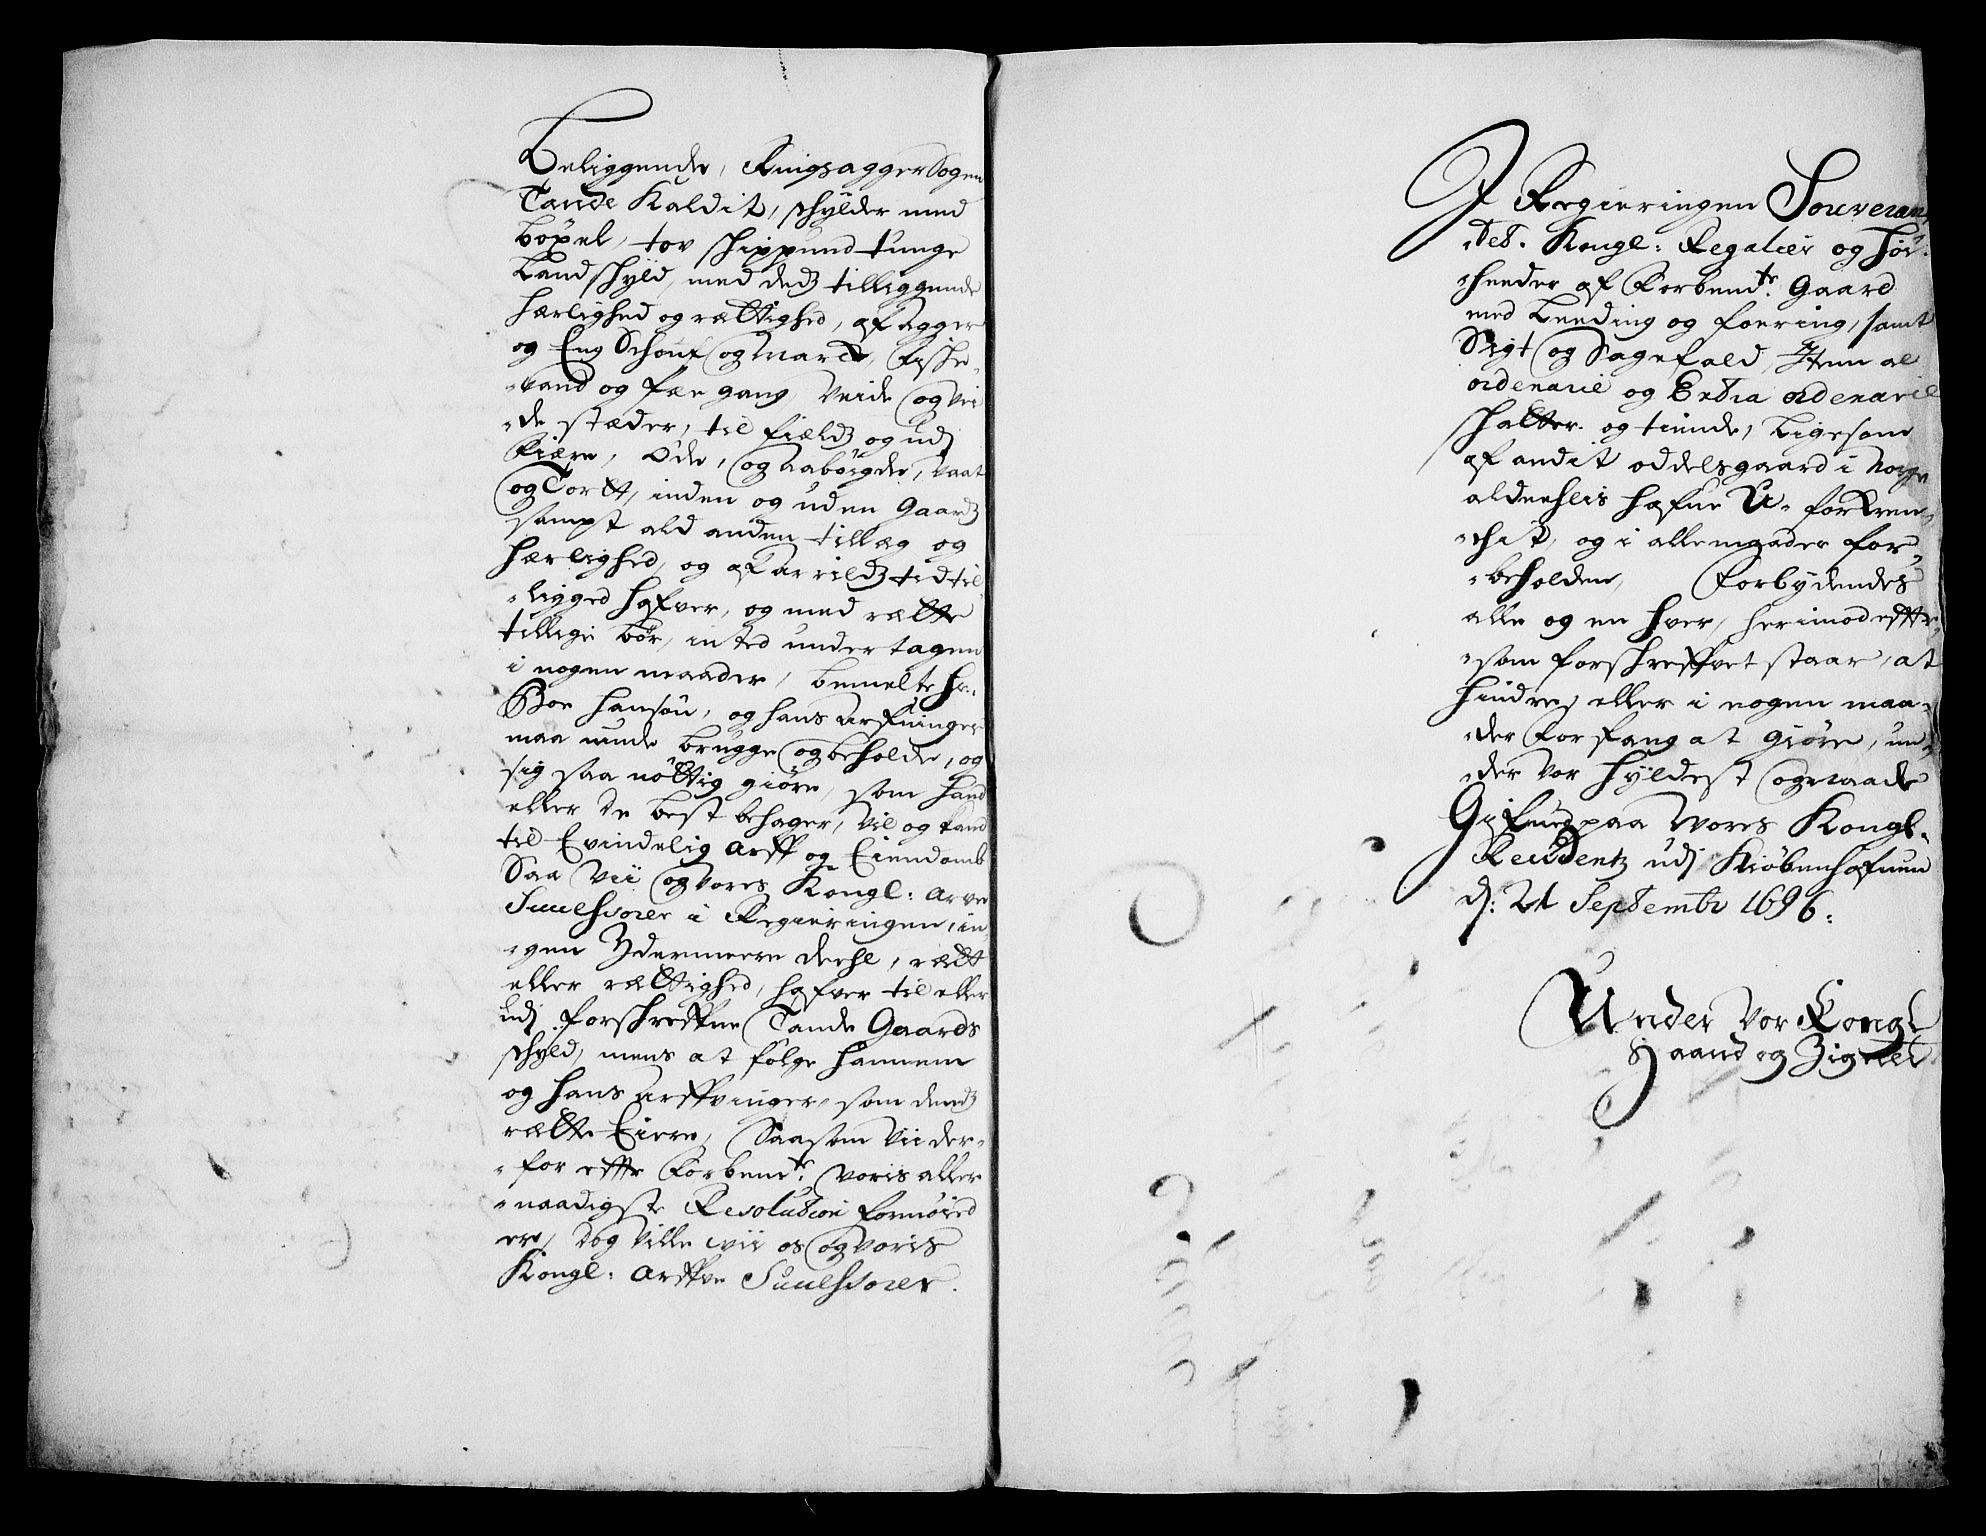 Beliggende, Ringsagger Sogen
Tande Kaldit, schylder med
böxel, tov schippund tunge
Landschyld, med deds tilliggende
Herlighed og rættighed, af agger
og Eng Schouf og Marck, Fiske-
-vand og fæe gang, Veide og Vei
-de stæder, til Field og udj
Fiære, Öde, og aabögde, Vaat
og Tört, inden og uden Gaards
sampt ald anden tillæg og
Herlighed, og af arrilds tid til
-ligged hafver, og med rætte
tilligi bör, inted undertagen
i nogen maader, bemelte Hr.
Boe Hansön, og hans arfuinger
maa niude brugge og beholde, og
sig saa nöttig giöre, som hand
eller de best behager, Vil og kand
til Evindelig Arff og Eiendomb
Saa Vii og vores Kongl: arve
Successorer i Regieringen, in-
-gen Ydermeere deehl, rætt
eller rættighed, hafver til eller
udj forschreffne Tande Gaards
schyld, mens at fölge hannem
og hans arffvinger, som deeds
rætte Eiere, Saasom Vii der-
-for effter Forbemte: Voris aller
-naadigste Resolution fornöied
er, dog Ville wii os og voris
Kongl: Arffve Successorer.
I Regieringen Souveraini
-tet. Kongl: Regalier og Höi-
-heeder af Forbemte: Gaard
med Leeding og foering, samt
Sigt og Sagefald, Item al
ordenarie og Extra ordenarie
schatter og tiende, Ligesom
af andit oddelsgaard i Norge
aldeehlis hafue U-forkren-
-chit, og i allemaader for-
-beholden, Forbydendes
alle og en hver, herimod effter-
-som forschreffvet staar, at
hindre, eller i nogen maa-
-der Forfang at giöre, un-
-der Vor hyldest og naade
Gifued paa Vores Kongl.
Residentz udj Kiöbenhafuen
d: 21 Septembr 1696:
Under Vor Kongl
Haand og Zignet